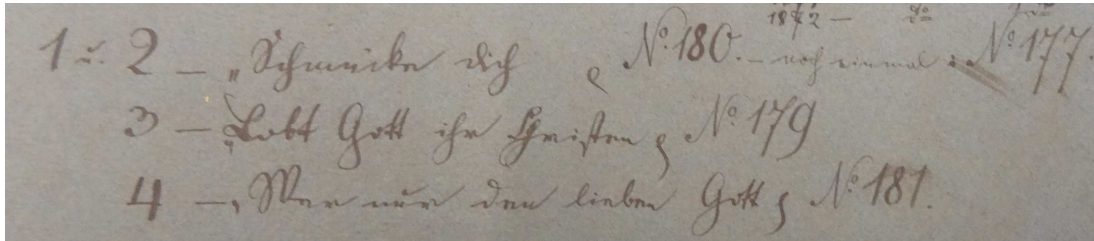 1872 – do do
1 u. 2 – „Schmücke dich No. 180. – noch einmal: No. 177.
3 – „Lobt Gott ihr Christen No. 179
4 – „Wer nur den lieben Gott No. 181.